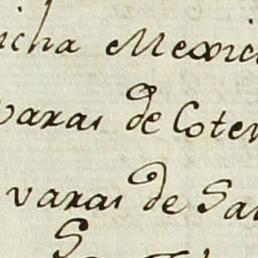 icha Mexic
varas de Coten
varas de Sa